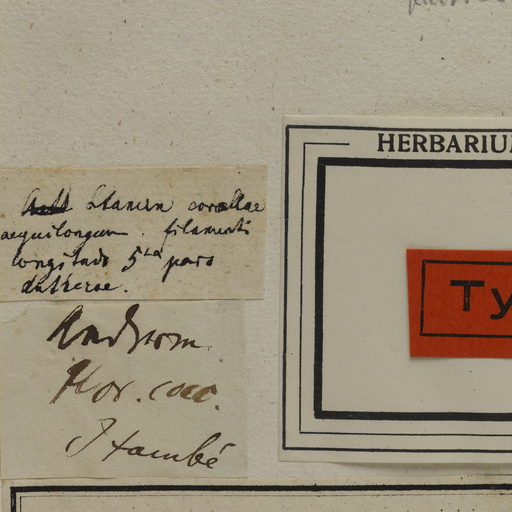 Stamen corollae
aequilongum. filamenti
longitudo 5ta pars
antherae.
Androm.
Flor. coc.
Itambé
HERBARIU
Ty